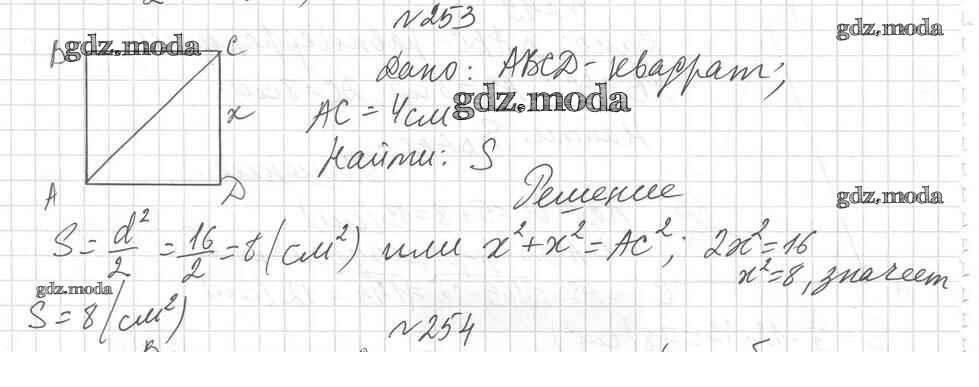 №253
gdz.moda
B C
gdz.moda
Дано: ABCD - квадрат;
x
AC = 4см
gdz.moda
Найти: S
A D
Решение
gdz.moda
S = d²/2 = 16/2 = 8 (см²) или x² + x² = AC²; 2x² = 16
x² = 8, значит
gdz.moda
S = 8 (см²)
№254
B